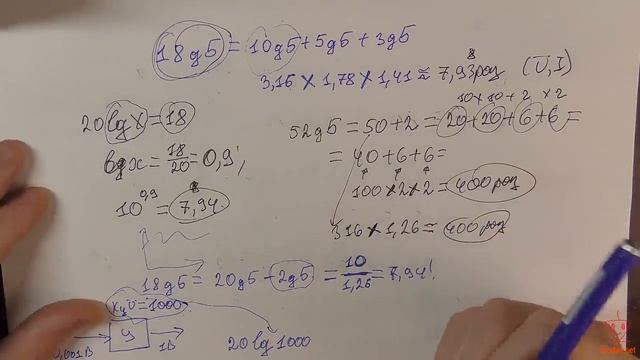 18дБ = 10дБ + 5дБ + 3дБ
3,16 × 1,78 × 1,41 ≈ 7,93раз (U,I)
8
20 lg X = 18
lg x = 18/20 = 0,9
10^0,9 = 7,94
8
10 × 10 × 2 × 2
52дБ = 50+2 = 20+20+6+6 =
= 40+6+6 =
100×2×2 = 400раз
316 × 1,26 = 400раз
18дБ = 20дБ − 2дБ = 10/1,26 = 7,94!
KyU = 1000
0,001В У 1В
20 lg 1000